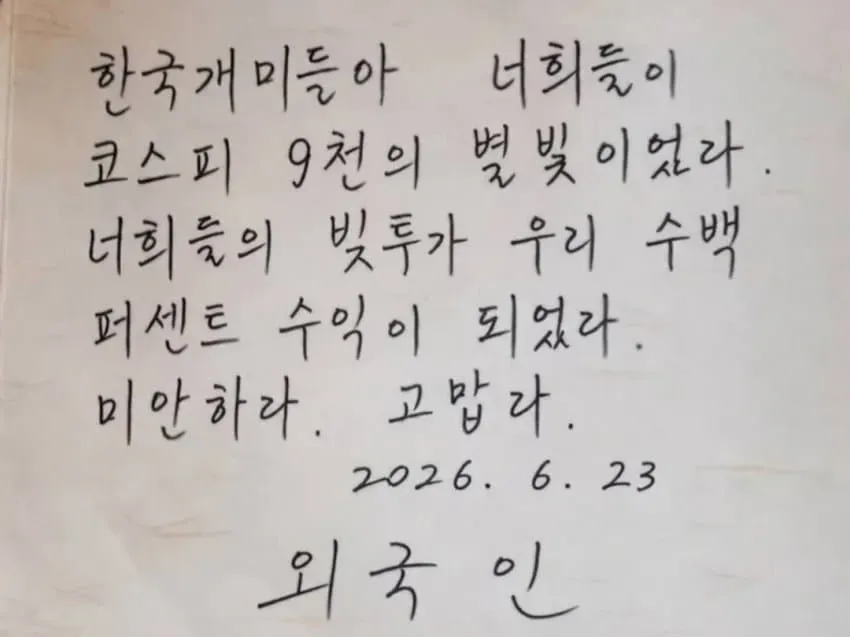 한국개미들아 너희들이
코스피 9천의 별빛이었라.
너희들의 빚투가 우리 수백
퍼센트 수익이 되었라.
미안하라. 고맙라.
2026. 6. 23
외국인